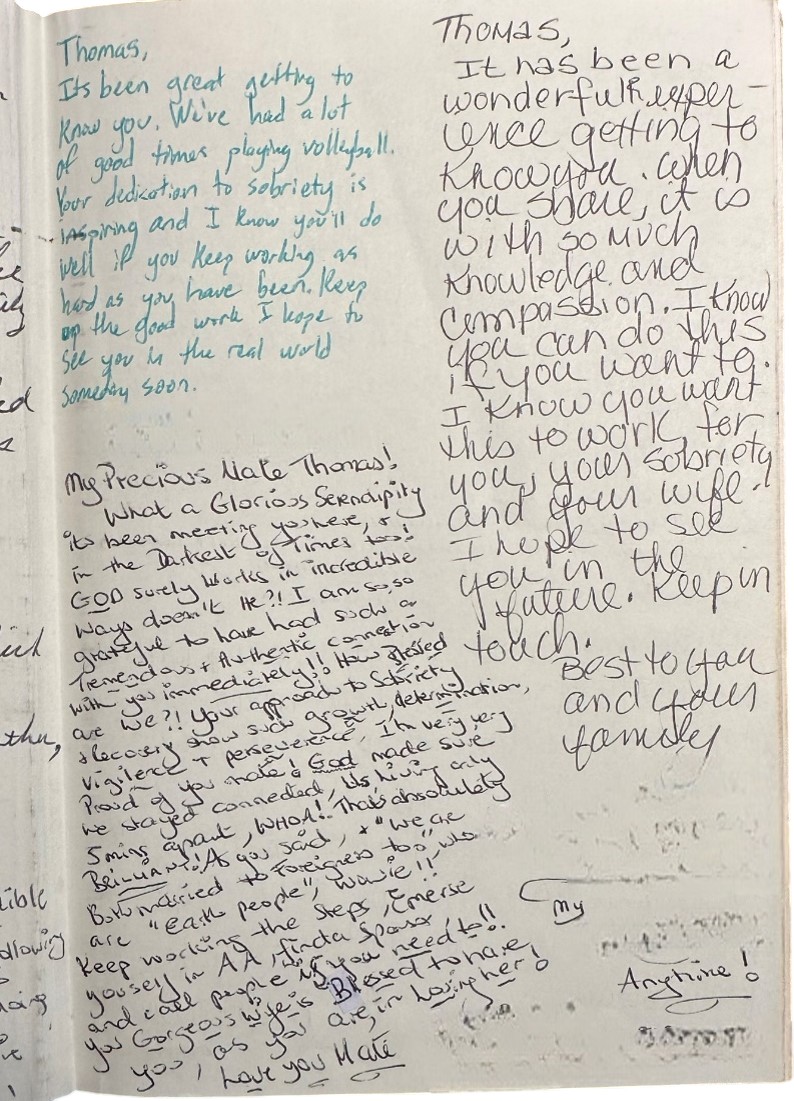 Thomas,
Its been great getting to
know you. We've had a lot
of good times playing volleyball.
Your dedication to sobriety is
inspiring and I know you'll do
well if you keep working as
hard as you have been. Keep
up the good work I hope to
see you in the real world
someday soon.
My Precious Mate Thomas!
What a Glorious Serendipity
its been meeting you here, +
in the Darkest of Times too!
GOD surely works in incredible
ways doesn't He?! I am so, so
grateful to have had such a
Tremendous + Authentic connection
with you immediately!! How Blessed
are we?! Your approach to Sobriety
+ Recovery show such growth, determination,
vigilence + perseverence, I'm very very
Proud of you mate! God made sure
we stayed connected, Us living only
5 mins apart, WHOA! That's absolutely
BRILLIANT! As you said, + "we are
Both married to Foreigners too" who
are "Earth people", wowie!!
Keep working the Steps, Emerse
youself in AA, find a Sponsor,
and call people if you need to!!
You Gorgeous Wife is Blessed to have
you, as you are, in loving her!
Love you Mate
Thomas,
It has been a
wonderful exper-
ience getting to
know you. When
you share, it is
with so much
knowledge and
compassion. I know
you can do this
if you want to.
I know you want
this to work, for
you, your sobriety
and your wife.
I hope to see
you in the
future. Keep in
touch.
Best to you
and your
family
My
Anytime!